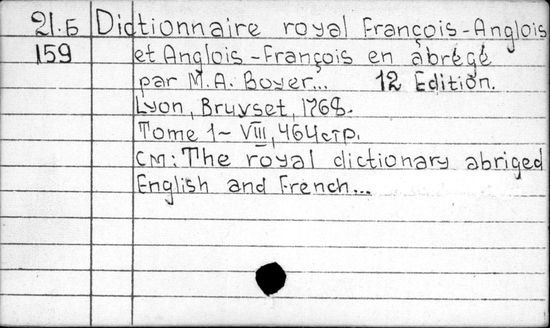 21.Б Dictionnaire royal François-Anglois
159 et Anglois-François en abrégé
par M.A. Boyer... 12 Edition.
Lyon, Bruyset, 1768.
Tome 1- VIII, 464стр.
см: The royal dictionary abriged
English and French...